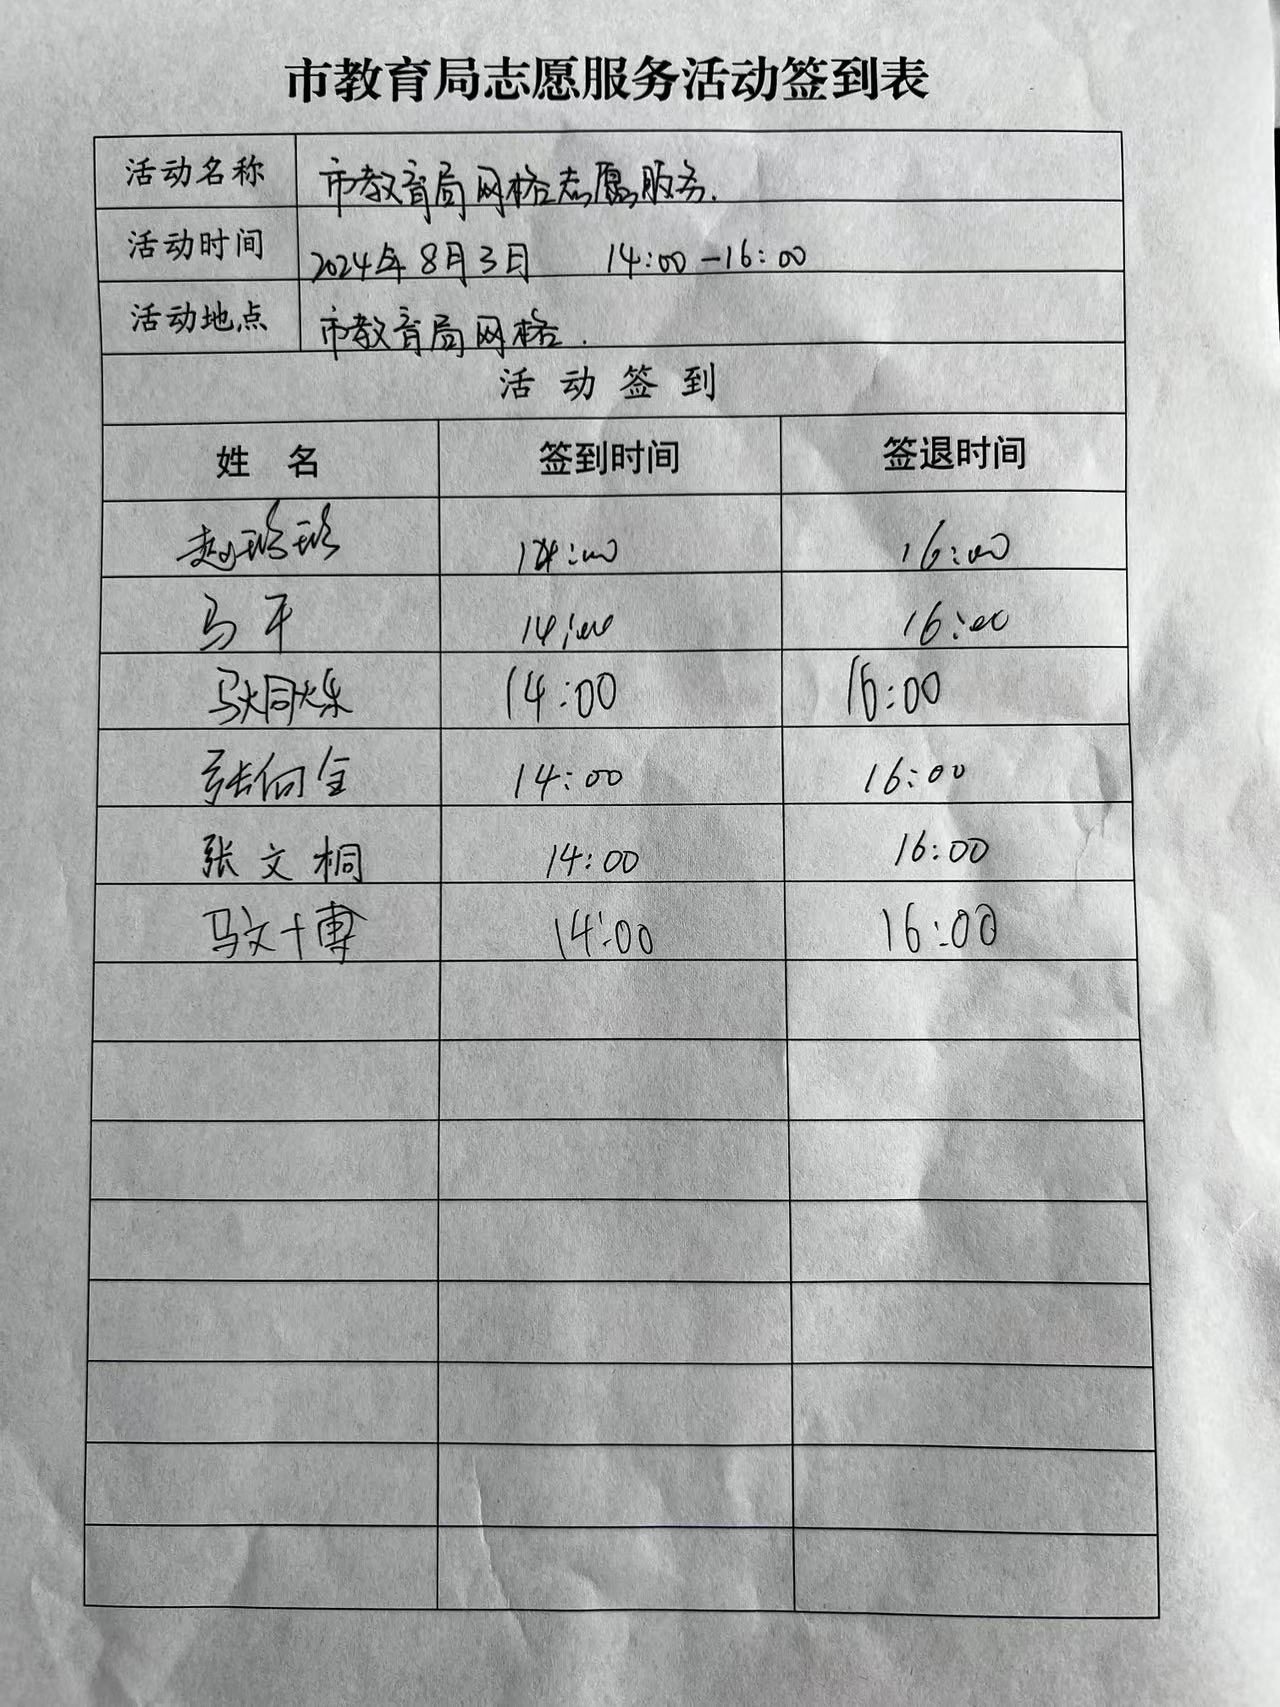 市教育局志愿服务活动签到表
活动名称 市教育局网格志愿服务.
活动时间 2024年8月3日 14:00-16:00
活动地点 市教育局网格.
活动签到
姓名 签到时间 签退时间
赵 14:00 16:00
马干 14:00 16:00
14:00 16:00
张向全 14:00 16:00
张文桐 14:00 16:00
马文博 14:00 16:00